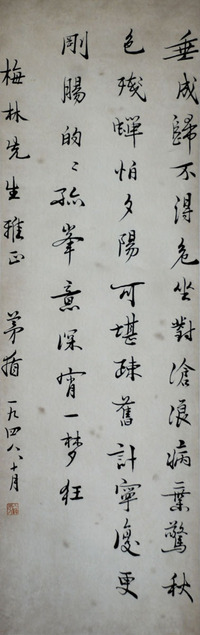 垂成歸不得危坐對滄浪病葉驚秋
色殘蟬怕夕陽可堪疎舊計寧復更
剛腸的〻孤峯意深宵一梦狂
梅林先生雅正 茅盾 一九四八、十月